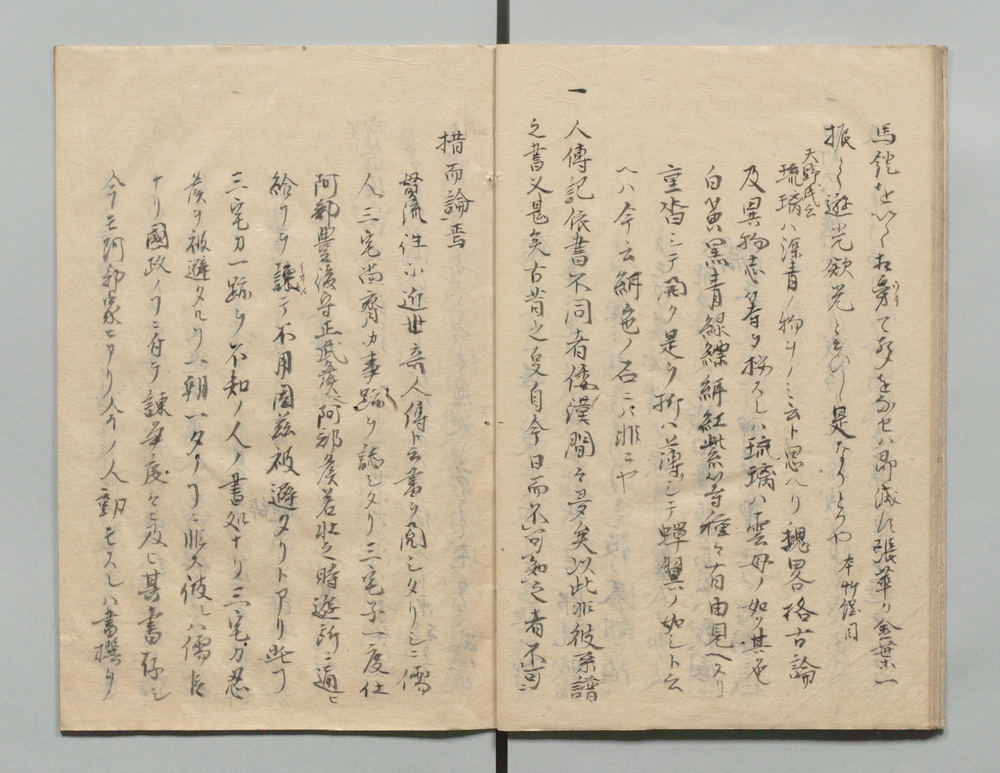 馬鐙を以て相磨て光をなせハ即滅ス張華カ金葉一
振々遊光欲光と云ひし是なりとかや 本竹筵目
天野氏云
琉璃ハ深青ノ物ヲノミ云ト思ヘリ魏畧格古論
及異物志等ヲ按スルハ琉璃ハ雲母ノ如ク其色
白黄黒青緑縹紺紅紫等種々有由見ヘタリ
重沓シテ開ク是ヲ折ハ薄シテ蝉翼ノ如シト云
ヘハ今云紺色ノ石ニハ非ニヤ
一
人傳記依書不同者倭漢間々多矣以此非彼系譜
之書又是矣古昔之変自今日而不可知之者不可
措而論焉
贅流 性 近世 人傳ト云書ヲ閲シタリシニ儒
人三宅尚齋カ事蹟ヲ誌シタリ三宅子一度仕
阿部豊後守正武矦ニ阿部矦若壮之時遊所ニ通ヒ
給フヲ諫テ不用因茲被避タリトアリ此ヿ
三宅カ一跡ヲ不知ノ人ノ書処ナリ三宅カ忍
矦ヲ被避タルヿ一朝一タノヿニ非ス彼レハ儒臣
ナリ國政ノヿニ付テ諫争度々ニ及ヒ其書存シ
今モ阿部家ニアリ今ノ人動モスレハ書撰ヲ